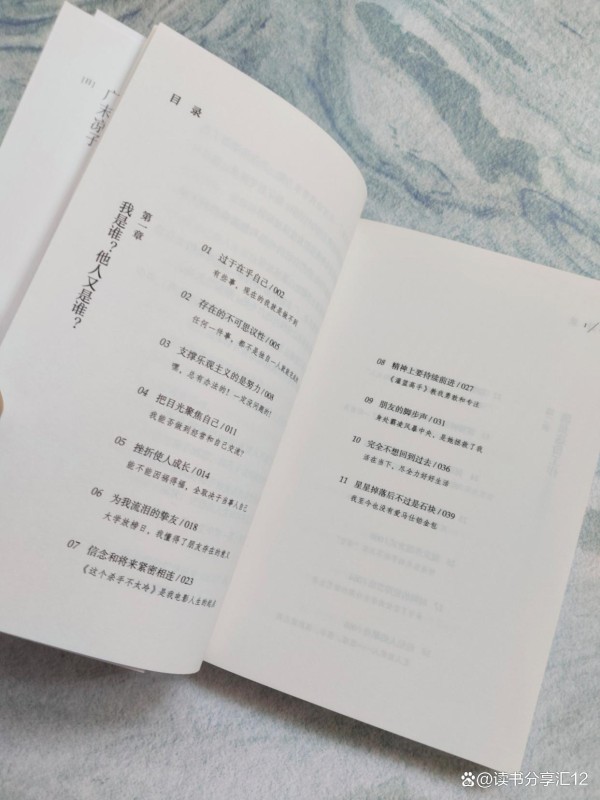 [日]
广末凉子
目录
第一章
我是谁？他人又是谁？
01 过于在乎自己/002
有些事，现在的我就是做不到
02 存在的不可思议性/005
任何一件事，都不是独自一人
03 支撑乐观主义的是努力/008
嘿，总有办法的！一定没问题的！
04 把目光聚焦自己/011
我能否做到经常和自己交流？
05 挫折使人成长/014
能不能因祸得福，全取决于当事人自己
06 为我流泪的挚友/018
大学放榜日，我懂得了朋友存在的意义
07 信念和将来紧密相连/023
《这个杀手不太冷》是我电影人生的起点
08 精神上要持续前进/027
《灌篮高手》教我勇敢和专注
09 朋友的脚步声/031
身处霸凌风暴中央，是她拯救了我
10 完全不想回到过去/036
活在当下，尽全力好好生活
11 星星掉落后不过是石块/039
我至今也没有爱马仕铂金包
读书分享汇12